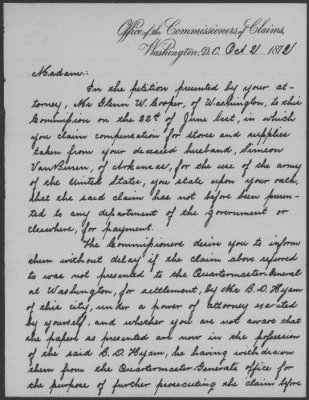 Office of the Commissioners of Claims,
Washington, D.C. Oct 21 1872
Madam:
In the petition presented by your at-
torney, Mr Glenn W. Cooper, of Washington, to this
Commission on the 22d of June last, in which
you claim compensation for stores and supplies
taken from your deceased husband, Simeon
Van Buren, of Arkansas, for the use of the army
of the United States, you state upon your oath,
that the said claim has not before been presen-
ted to any department of the government or
elsewhere, for payment.
The Commissioners desire you to inform
them without delay if the claim above referred
to was not presented to the Quartermaster General
at Washington, for settlement, by Mr B. D. Hyam
of this city, under a power of attorney executed
by yourself, and whether you are not aware that
the papers so presented are now in the possession
of the said B. D. Hyam, he having withdrawn
them from the Quartermaster Generals office for
the purpose of further prosecuting the claim before